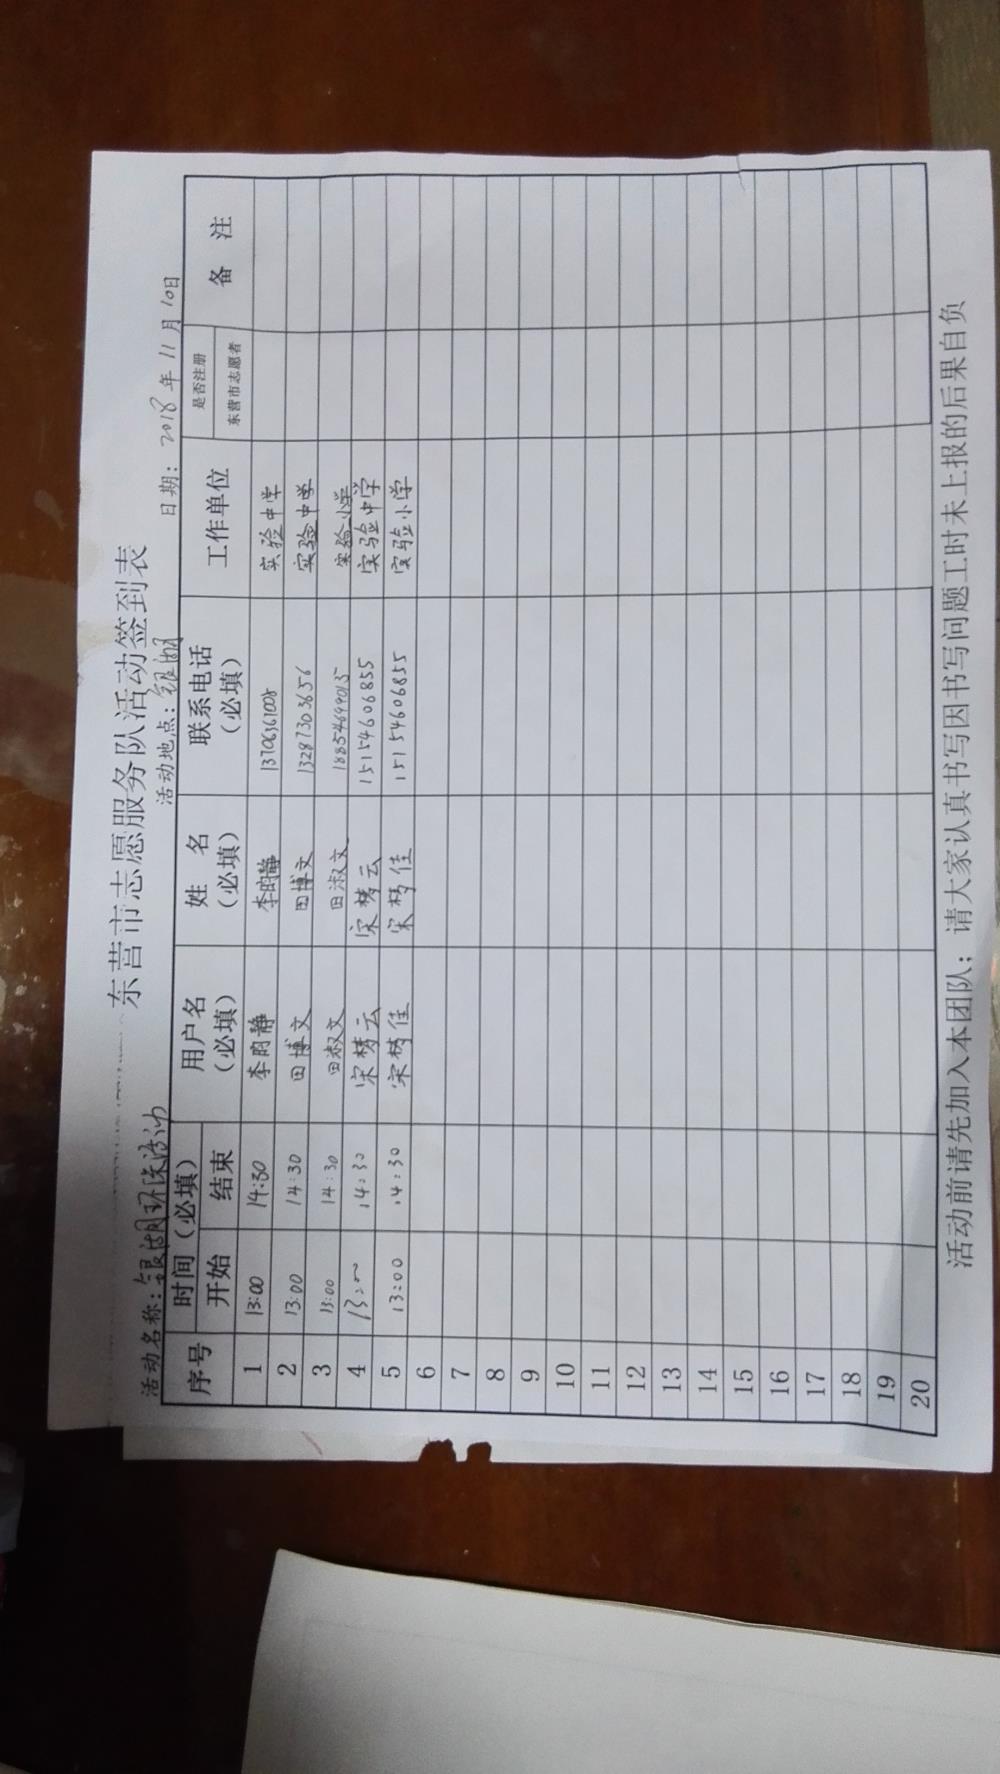 东营市志愿服务队活动签到表
活动名称：银湖环保活动 活动地点：银湖 日期：2018年11月10日
序号 时间（必填） 用户名（必填） 姓名（必填） 联系电话（必填） 工作单位 是否注册东营市志愿者 备注
开始 结束
1 13:00 14:30 李昀静 李昀静 13706361008 实验中学
2 13:00 14:30 田博文 田博文 13287303656 实验中学
3 13:00 14:30 田淑文 田淑文 18854699015 实验小学
4 13:00 14:30 宋梦云 宋梦云 15154606855 实验中学
5 13:00 14:30 宋梦佳 宋梦佳 15154606855 实验小学
6
7
8
9
10
11
12
13
14
15
16
17
18
19
20
活动前请先加入本团队；请大家认真书写因书写问题工时未上报的后果自负